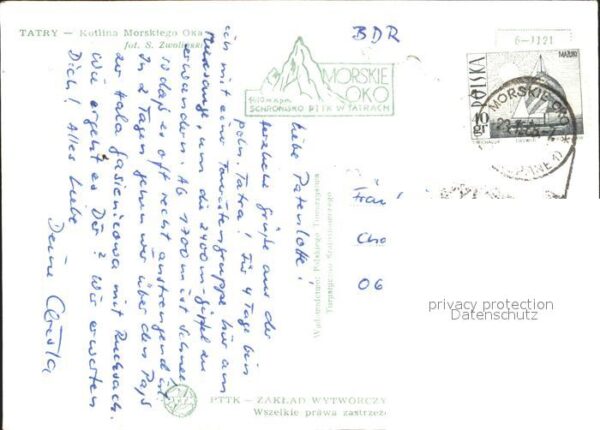 TATRY — Kotlina Morskiego Oka
fot. S. Zwoliński
BDR
6-1121
MORSKIE
OKO
SCHRONISKO PTTK W TATRACH
POLSKA
10
gr
MORSKIE OKO
Liebe Patenlotte!
Herzliche Grüße aus der
poln. Tatra! Für 4 Tage bin
ich mit einer Touristengruppe hier am
Meerauge, um die 2100 m Gipfel zu
erwandern. Ab 1700 m ist Schnee
so daß es oft recht anstrengend ist
In 2 Tagen gehen wir über den Paß
zur Hala Gąsienicowa mit Rucksack.
Wie ergeht es Dir? Wir erwarten
Dich! Alles Liebe
Deine Christa
Wydawnictwo Polskiego Towarzystwa
Turystyczno-Krajoznawczego
Frau
06
privacy protection
Datenschutz
PTTK — ZAKŁAD WYTWÓRCZY
Wszelkie prawa zastrzeż